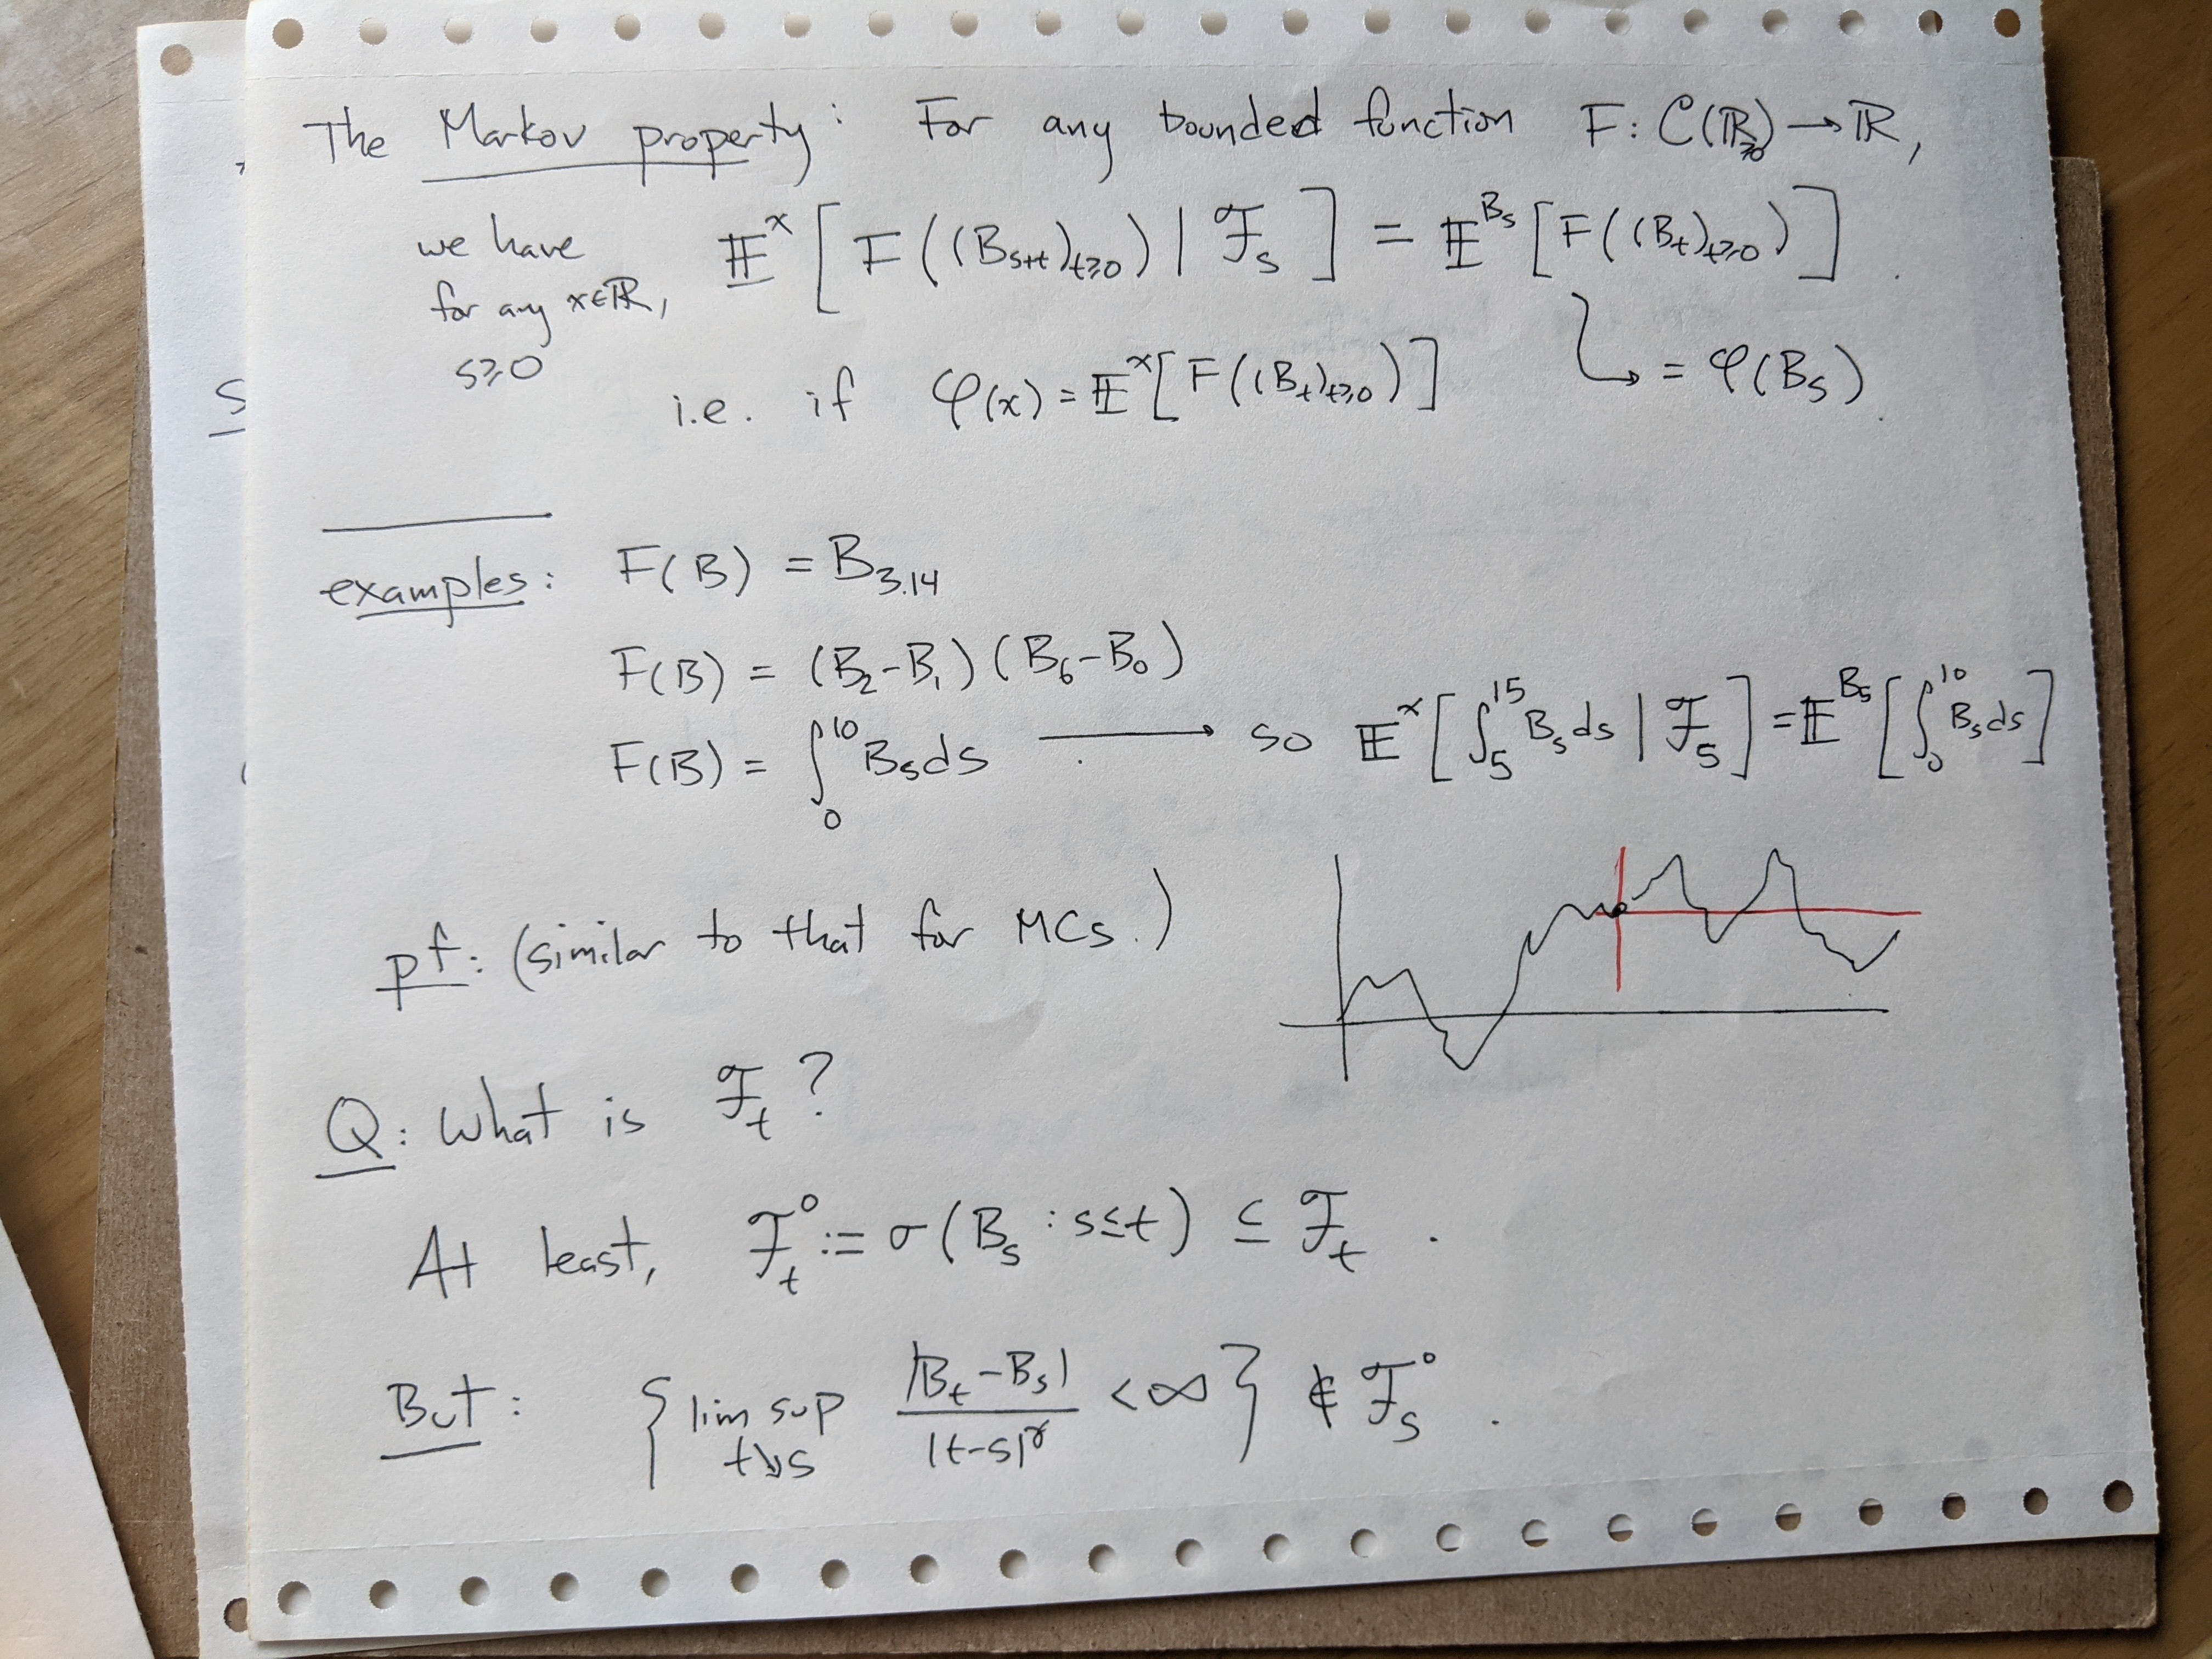 The Markov property: For any bounded function F: C(ℝ≥0) → ℝ,
we have for any x∈ℝ, s≥0 𝔼^x [ F((B_{s+t})_{t≥0}) | ℱ_s ] = 𝔼^{B_s} [ F((B_t)_{t≥0}) ].
i.e. if φ(x) = 𝔼^x [ F((B_t)_{t≥0}) ] ↳ = φ(B_s).
examples: F(B) = B_{3.14}
F(B) = (B_2 - B_1)(B_6 - B_0)
F(B) = ∫_0^{10} B_s ds ⟶ so 𝔼^x [ ∫_5^{15} B_s ds | ℱ_5 ] = 𝔼^{B_5} [ ∫_0^{10} B_s ds ]
pf: (similar to that for MCs.)
Q: What is ℱ_t ?
At least, ℱ_t^0 := σ(B_s : s≤t) ⊆ ℱ_t .
But: { lim sup_{t↘s} |B_t - B_s| / |t-s|^γ < ∞ } ∉ ℱ_s^0 .
S